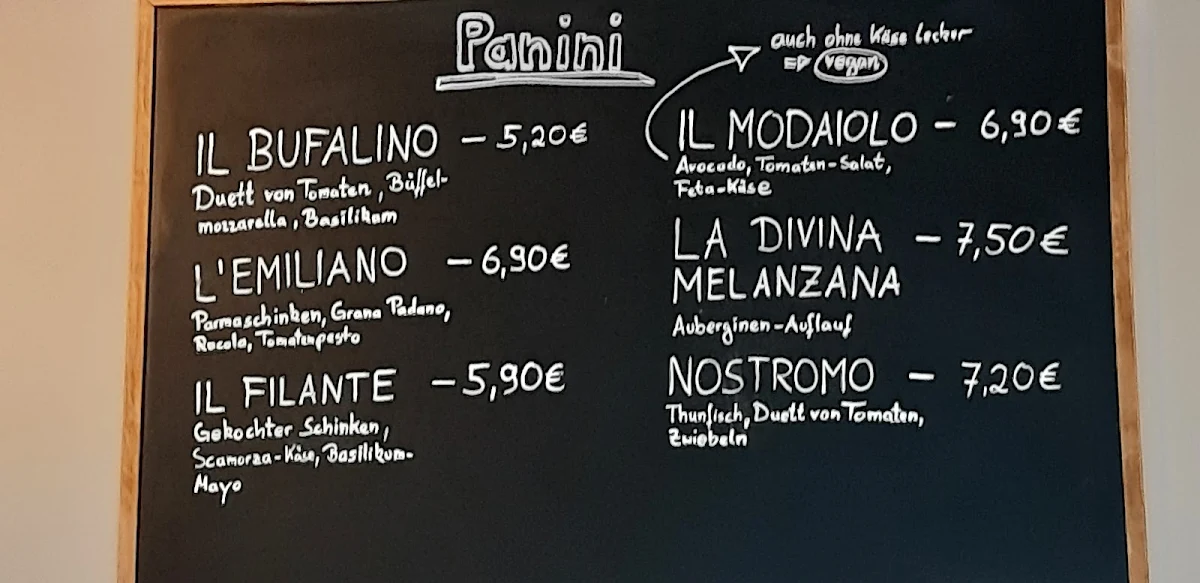 Panini
IL BUFALINO - 5,20€
Duett von Tomaten, Büffel-
mozzarella, Basilikum
L'EMILIANO - 6,90€
Parmaschinken, Grana Padano,
Rucola, Tomatenpesto
IL FILANTE - 5,90€
Gekochter Schinken,
Scamorza-Käse, Basilikum-
Mayo
auch ohne Käse lecker
⇒ vegan
IL MODAIOLO - 6,90€
Avocado, Tomaten-Salat,
Feta-Käse
LA DIVINA - 7,50€
MELANZANA
Auberginen-Auflauf
NOSTROMO - 7,20€
Thunfisch, Duett von Tomaten,
Zwiebeln